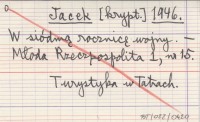 Jacek [krypt.] 1946.
W siódmą rocznicę wojny. —
Młoda Rzeczpospolita 1, no 15.
Turystyka w Tatrach.